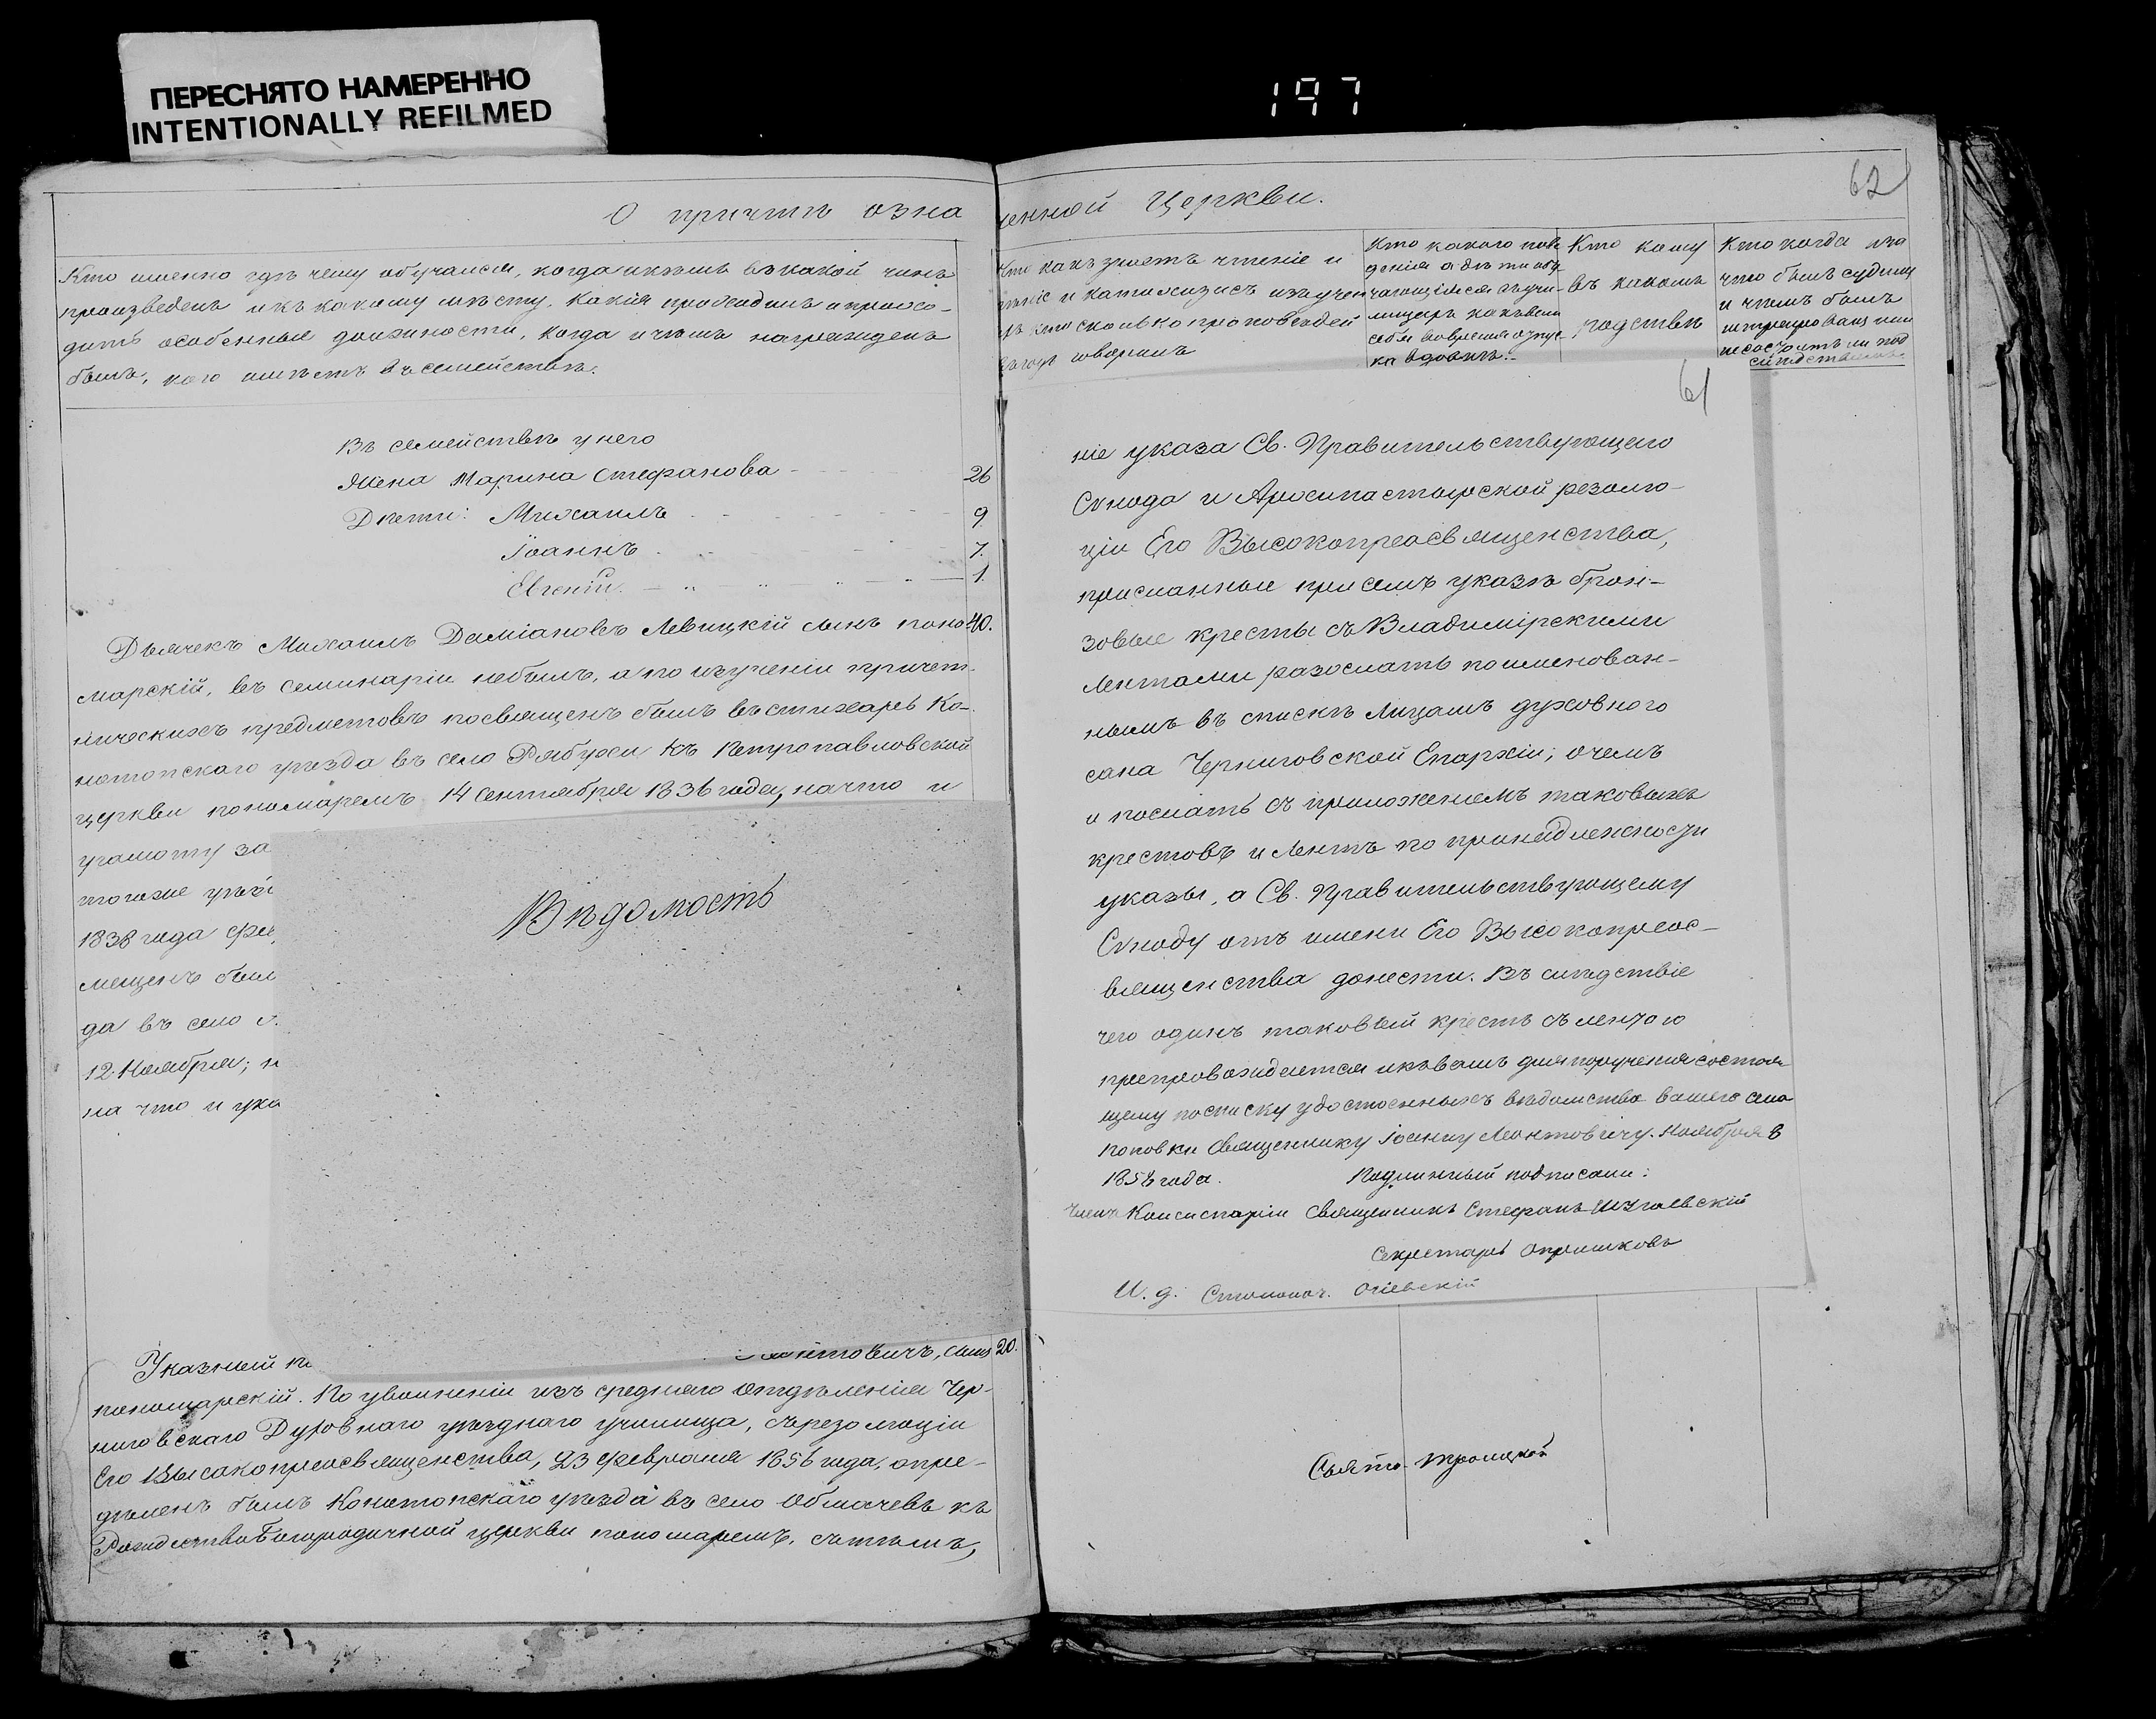 ПЕРЕСНЯТО НАМЕРЕННО
INTENTIONALLY REFILMED
197
62
О причтѣ озна
ченной Церкви.
Кто именно гдѣ чему обучался, когда и кѣмъ въ какой чинъ
произведенъ и къ какому мѣсту. Какія проходилъ и прохо-
дитъ особенныя должности, когда и чѣмъ награжденъ
былъ, кого имѣетъ въ семействѣ.
Въ семействѣ у него
Жена Марина Стефанова 26
Дѣти: Михаилъ 9
Іоаннъ 7.
Евгеній 1.
Дьячекъ Михаилъ Даміановъ Левицкій сынъ поно 40.
марскій, въ семинаріи небылъ, а по изученіи причет-
ническихъ предметовъ посвященъ былъ въ стихарь Ко-
нотопскаго уѣзда въ село Рябухи къ Петропавловской
церкви пономаремъ 14 Сентября 1836 года, на что и
грамоту за
тогоже уѣз
1838 года Фе
мещенъ был
да въ село
12 Ноября; и
на что и ука
Вѣдомость
Указный
нтовичъ, сынъ 20.
пономарскій. По увольненіи изъ средняго отдѣленія Чер-
ниговскаго Духовнаго уѣзднаго училища, съ резолюціи
Его Высокопреосвященства, 23 февраля 1856 года, опре-
дѣленъ былъ Конотопскаго уѣзда въ село Обмачевъ къ
РождествоБогородичной церкви пономаремъ. съ тѣмъ,
Кто какъ знаетъ чтеніе и
пѣніе и катихизисъ изучен
кто сколько проповѣдей
въ годъ говорилъ
Кто какого пове
денія а дѣти обу
чающіяся въ учи-
лищахъ какъ вели
себя во время отпус
ка въ домъ.
Кто кому
въ какомъ
родствѣ
Кто когда и за
что былъ судимъ
и чѣмъ былъ
штрафованъ или
не состоитъ ли под
слѣдствіемъ
61
ніе указа Св. Правительствующаго
Сѵнода и Архипастырской резолю-
ціи Его Высокопреосвященства,
присланные при семъ указѣ брон-
зовые кресты съ Владимірскими
лентами разослать поименован-
нымъ въ спискѣ лицамъ духовного
сана Черниговской Епархіи; о чемъ
и послать съ приложеніемъ таковыхъ
крестовъ и лентъ по принадлежности
указы, а Св. Правительствующему
Сѵноду отъ имени Его Высокопреос-
вященства донести. Въ слѣдствіе
чего одинъ таковый крестъ съ лентою
препровождается и къ вамъ для порученія состоя
щему по списку удостоенныхъ вѣдомства вашего села
Поповки Священнику Іоанну Леонтовичу. Ноября 8
1858 года. Подлинный подписали:
Членъ Консисторіи Священникъ Стефанъ
Секретарь Опришковъ
И. д. Столонач.
Свято-Троицкой